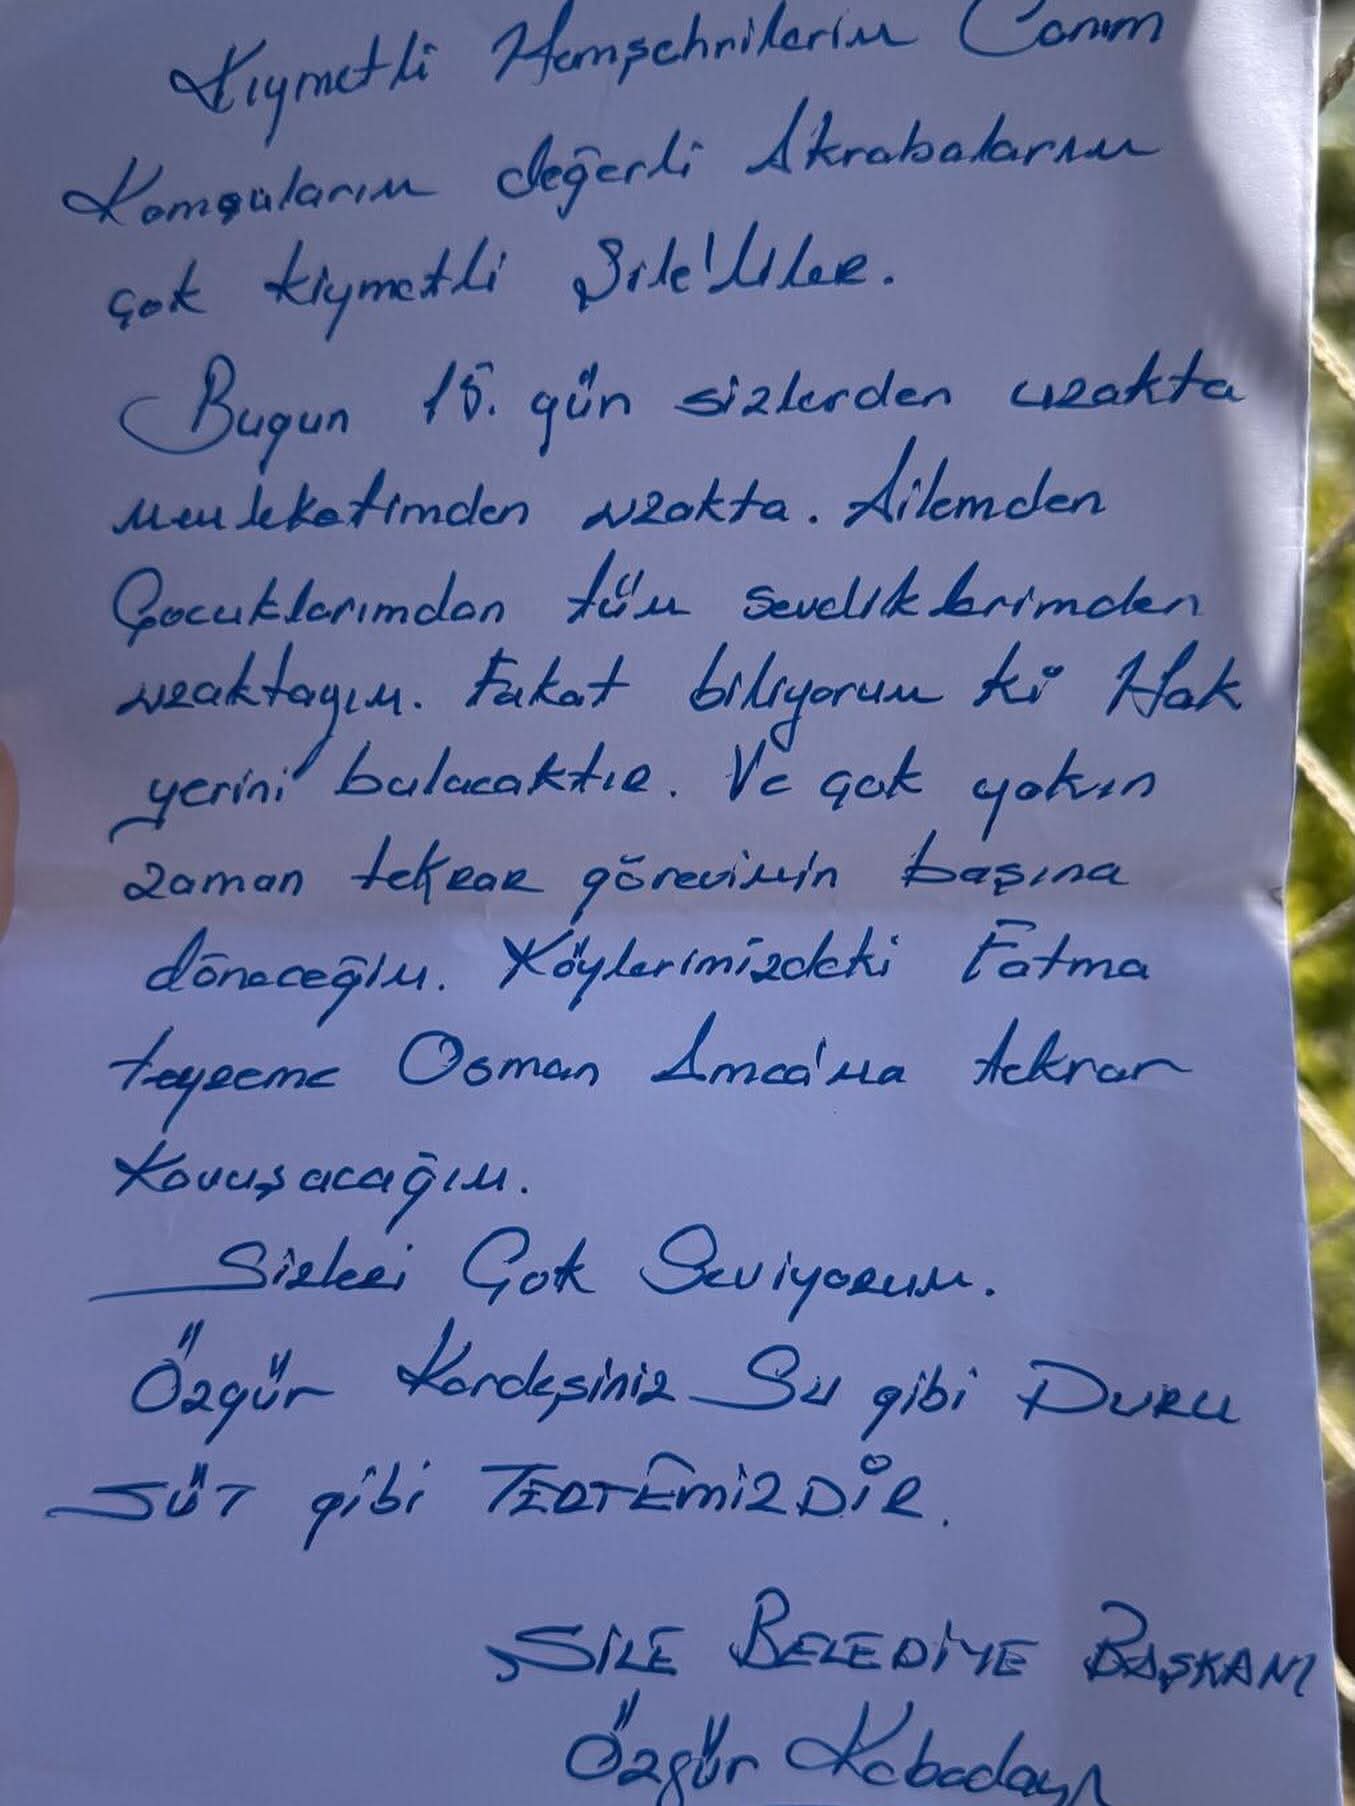 Kıymetli Hemşehrilerim Canım
Komşularım değerli Akrabalarım
çok kıymetli Şile'liler.
Bugun 15. gün sizlerden uzakta
memleketimden uzakta. Ailemden
Çocuklarımdan tüm sevdiklerimden
uzaktayım. Fakat biliyorum ki Hak
yerini bulacaktır. Ve çok yakın
zaman tekrar görevimin başına
döneceğim. Köylerimizdeki Fatma
teyzeme Osman Amca'ma tekrar
Kavuşacağım.
Sizleri Çok Seviyorum.
Özgür Kardeşiniz Su gibi DURU
SÜT gibi TERTEMİZDİR.
ŞİLE BELEDİYE BAŞKANI
Özgür Kabadayı